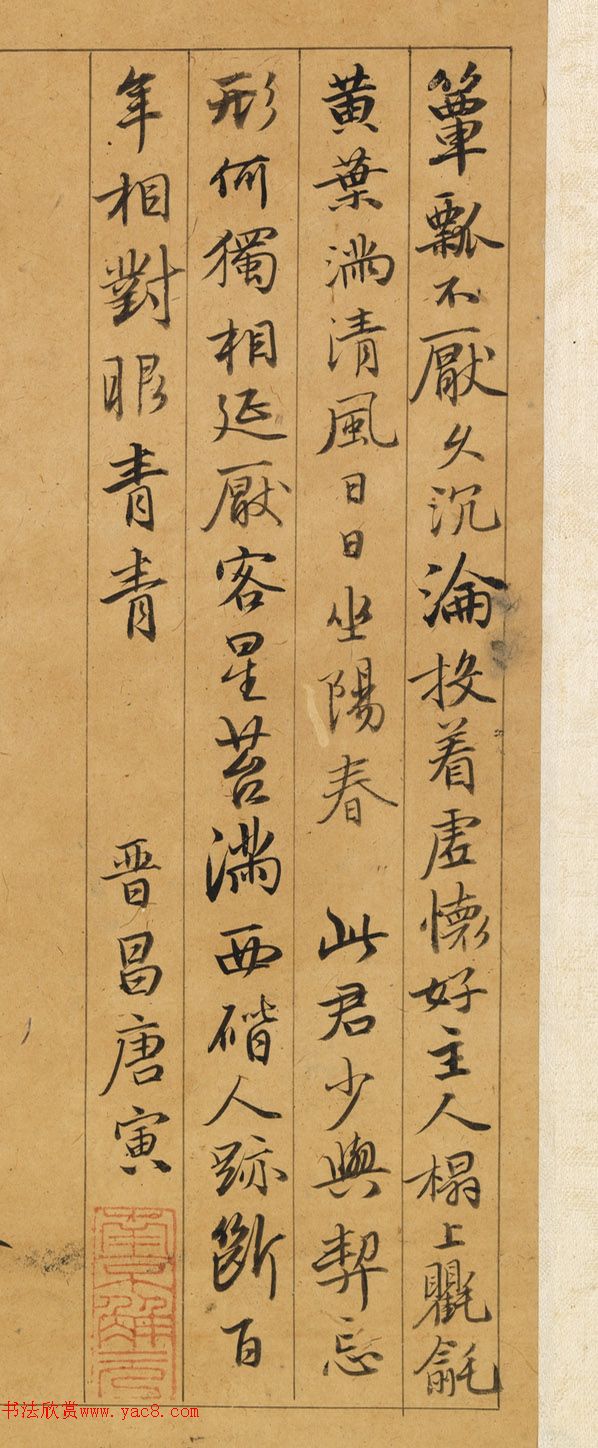 簞瓢不厭久沉淪投着虛懷好主人榻上氍毹
黃葉滿清風日日坐陽春 此君少與契忘
形何獨相延厭客星苔滿西階人跡斷百
年相對眼青青 晉昌唐寅
南京解元
书法欣赏www.yac8.com